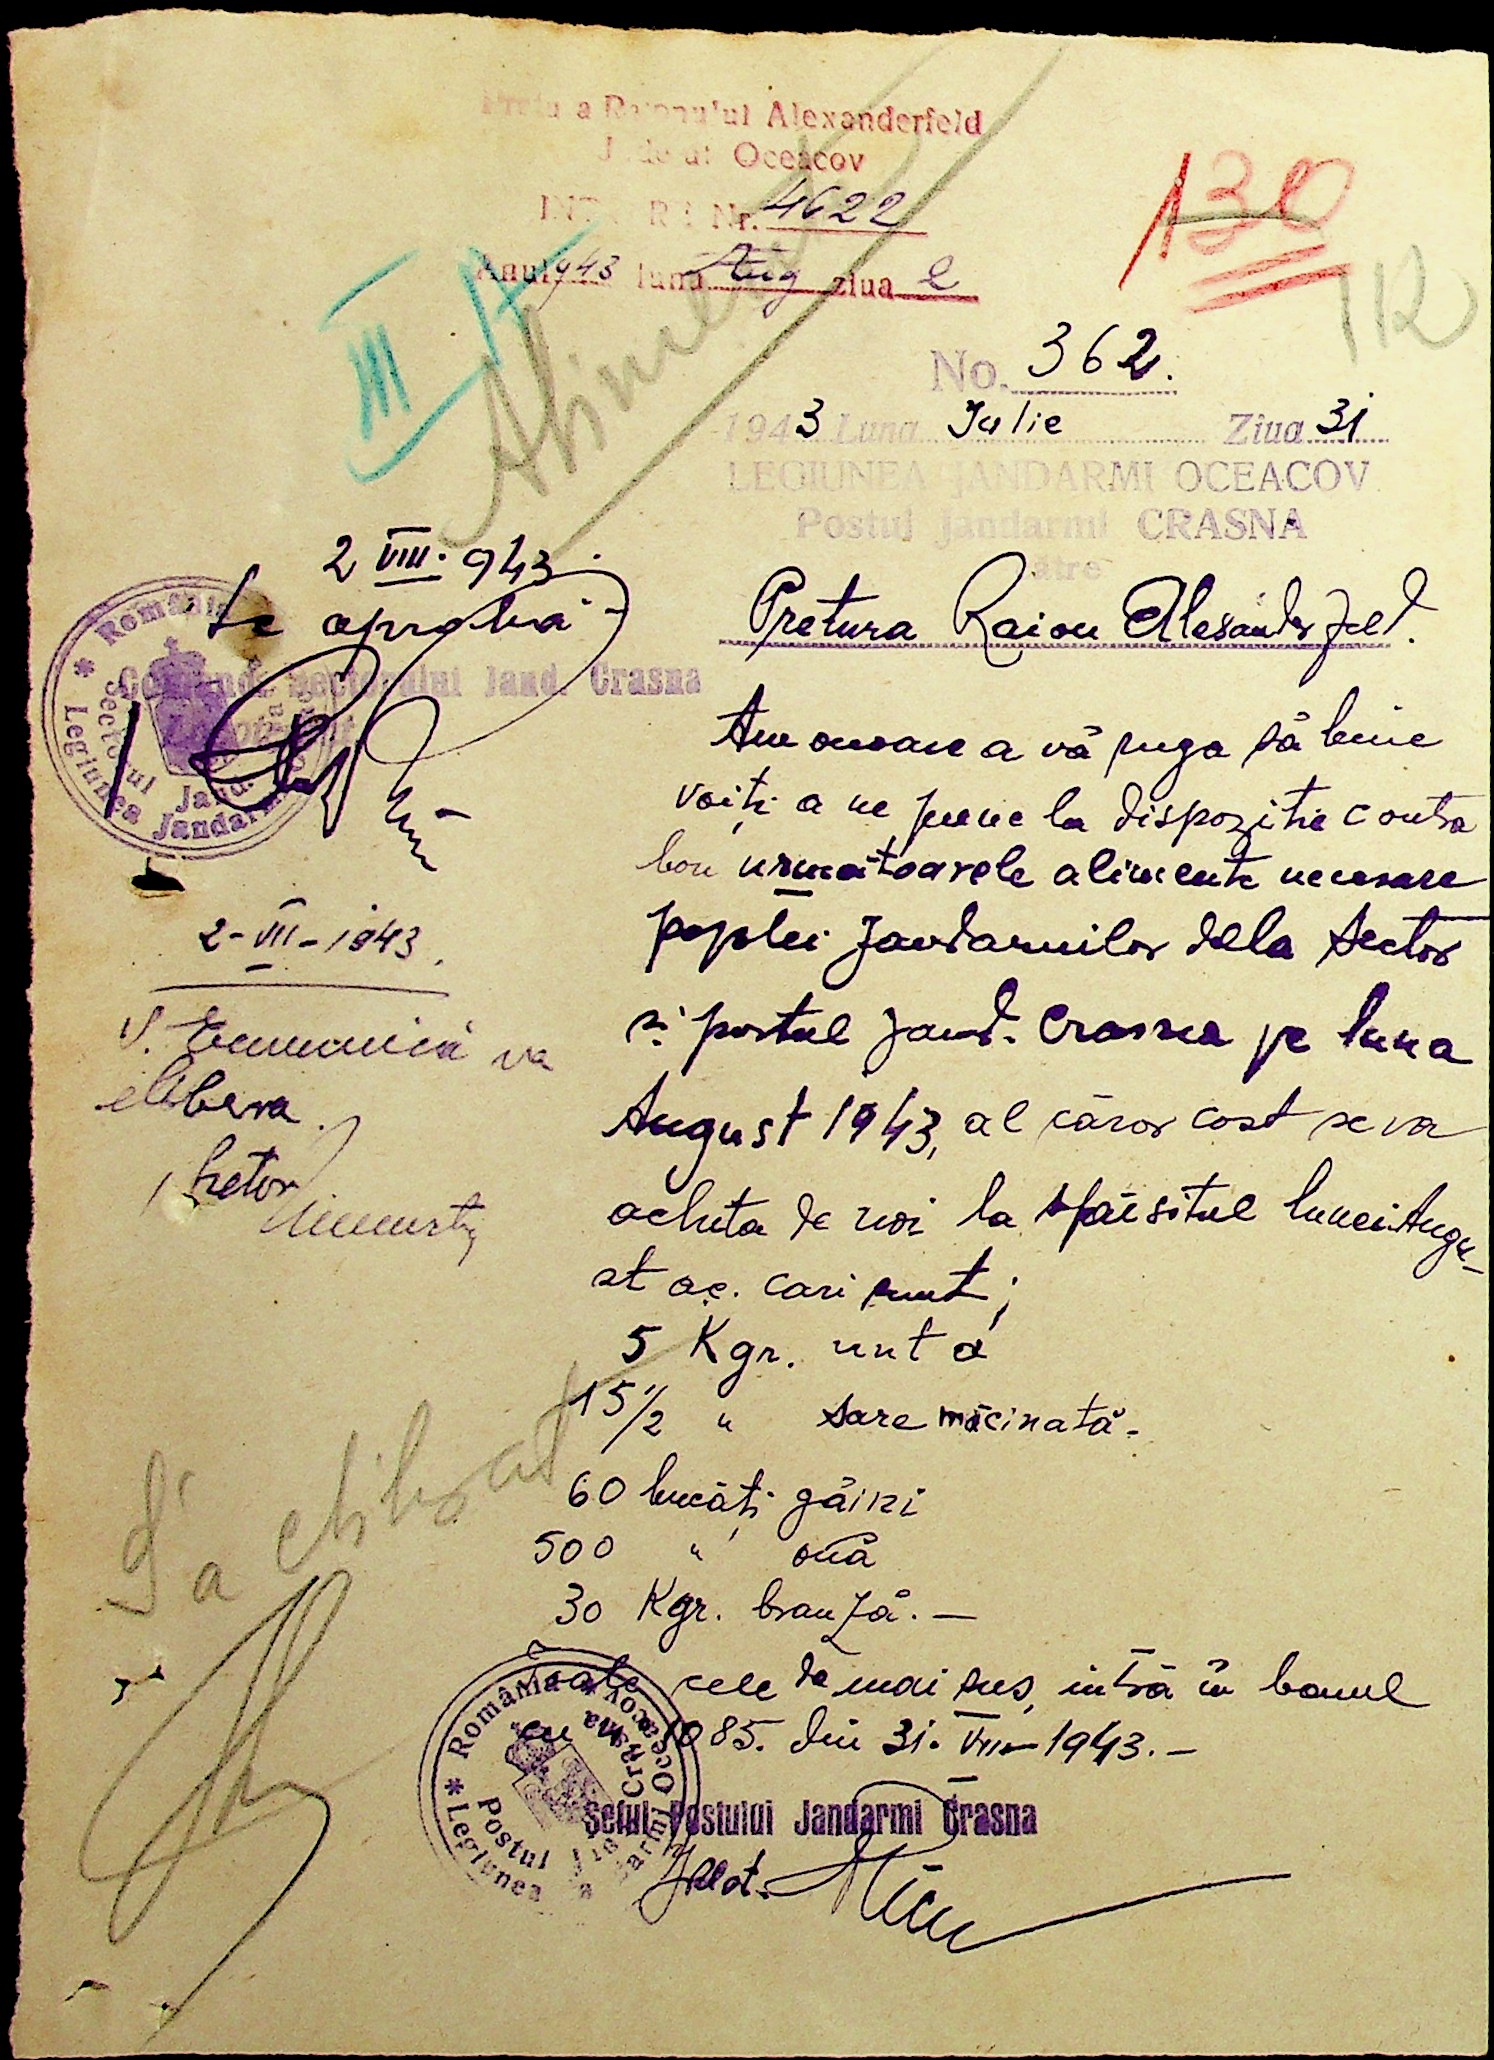 a Raionului Alexanderfeld
Oceacov
Nr. 4622
Anul 943 luna Aug ziua 2
130
112
III
No. 362.
1943 Luna Iulie Ziua 31
LEGIUNEA JANDARMI OCEACOV
Postul jandarmi CRASNA
către
Pretura Raion Alesanderfeld.
2 VIII. 943.
Se aprobă
Comand. Sectorului Jand. Crasna
România
Sectorul Jand.
Legiunea Jandarmi
Am onoare a vă ruga să bine
voiți a ne pune la dispoziție contra
bon următoarele alimente necesare
popotei jandarmilor dela Sector
și postul jand. Crasna pe luna
August 1943, al căror cost se va
achita de noi la sfârsitul lunei Augu-
st a.c. cari sunt;
5 Kgr. unt
15 1/2 " sare măcinată.
60 bucăți găini
500 " ouă
30 Kgr. branză. —
Toate cele de mai sus, intră în bonul
1085. din 31. VIII 1943. —
2-VII-1943.
S. Economică va
elibera.
Pretor
S'a eliberat
România
Postul Crasna
Legiunea Jandarmi Oceacov
Șeful Postului Jandarmi Crasna
Plot.